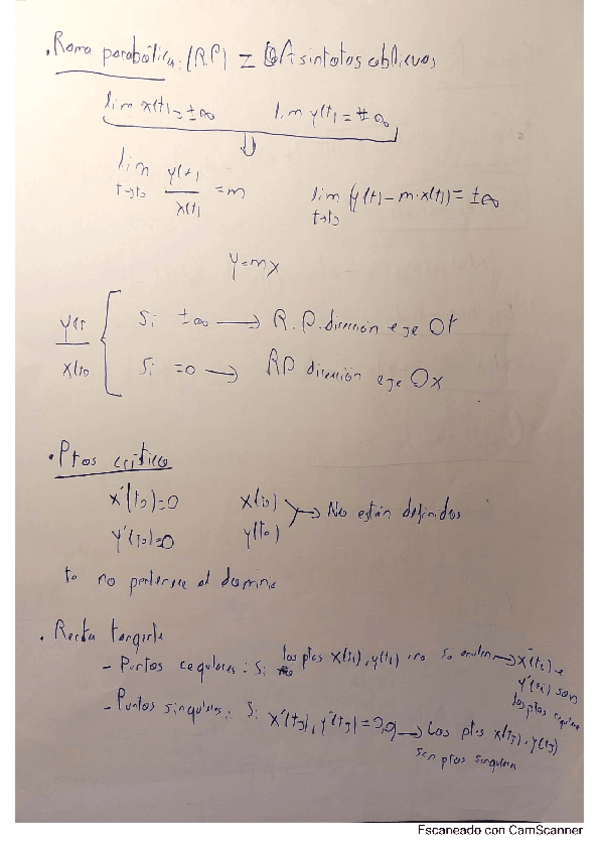 . Rama parabólica: (R.P) = Asintotas oblicuas
lim x(t) = ±∞ lim y(t) = ±∞
⇓
lim t→t0 y(t)/x(t) = m lim t→t0 (y(t) - m·x(t)) = ±∞
y=mx
y(t)/x(t) { Si ±∞ → R.P. dirección eje Oy
Si =0 → RP dirección eje Ox
. Ptos critico
x'(t0)=0 x(t0)
y'(t0)=0 y(t0) → No están definidos
t0 no pertenece al dominio
. Recta tangente
- Puntos regulares: Si los ptos x(ti), y(ti) no se anulen → x'(ti) e
y'(ti) son
los ptos
- Puntos singulares: Si x'(tj), y'(tj) = 0,0 → Los ptos x(tj), y(tj)
son ptos singulares
Escaneado con CamScanner